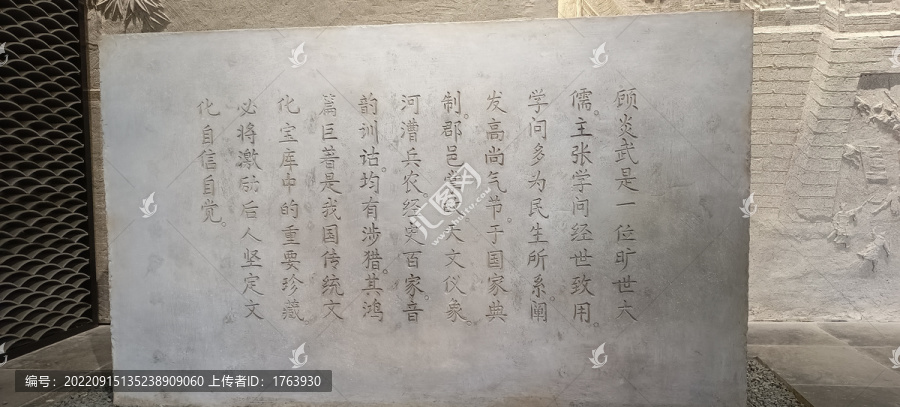 顾炎武是一位旷世大
儒。主张学问经世致用。
学问多为民生所系。阐
发高尚气节。于国家典
制。郡邑掌故。天文仪象。
河漕兵农。经史百家。音
韵训诂。均有涉猎。其鸿
篇巨著是我国传统文
化宝库中的重要珍藏
必将激励后人坚定文
化自信自觉。
汇图网
编号：20220915135238909060 上传者ID：1763930